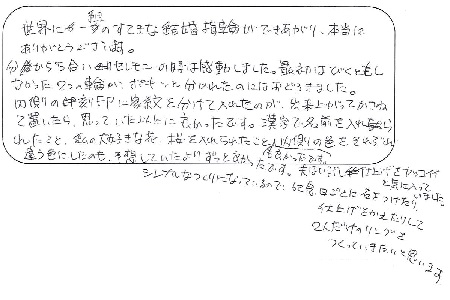 世界に一組のすてきな結婚指輪ができあがり、本当に
ありがとうございます。
分かち合いのセレモニーの時は感動しました。最初はびくともし
なかった2つの輪が、ポキンと分かれたのにはおどろきました。
内側の時刻印に家紋を分けて入れたのが、出来上がってかさね
て置いたら、思っていた以上に良かったです。漢字で名前を入れ
られたこと、私の大好きな花、桜を入れられたこと、内側の色をそれぞれ
違う色にしたのも、予想していたよりずっと良かったです。
仕上げをカッコイイ
と気に入って
いました。
シンプルなつくりになっているので、記念日ごとに
仕上げをかえたりして
2人だけのリングを
つくっていきたいと思います